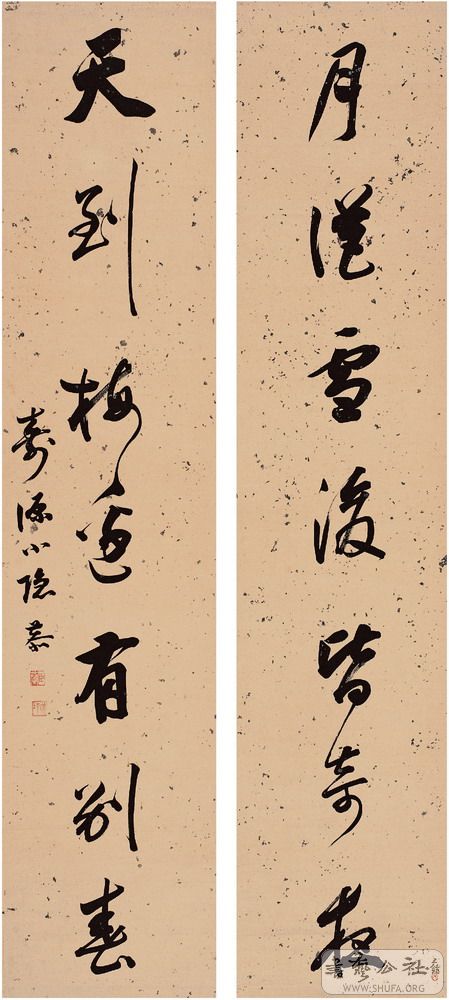 月從雪後皆奇夜
天到梅邊有別春
壽源小隱
書藝公社
WWW.SHUFA.ORG